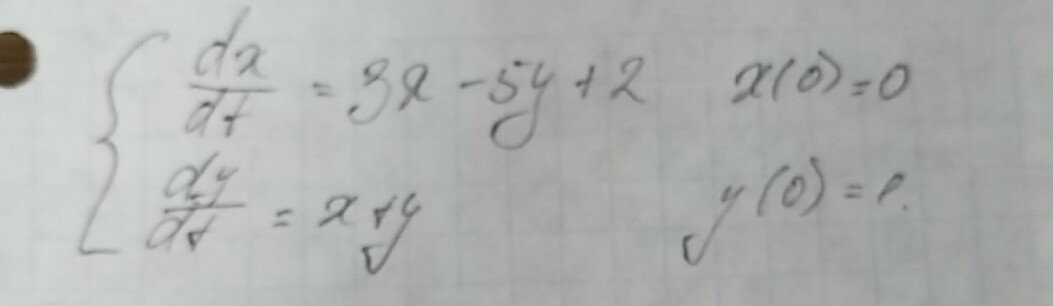 dx/dt = 3x - 5y + 2 x(0) = 0
dy/dt = x + y y(0) =